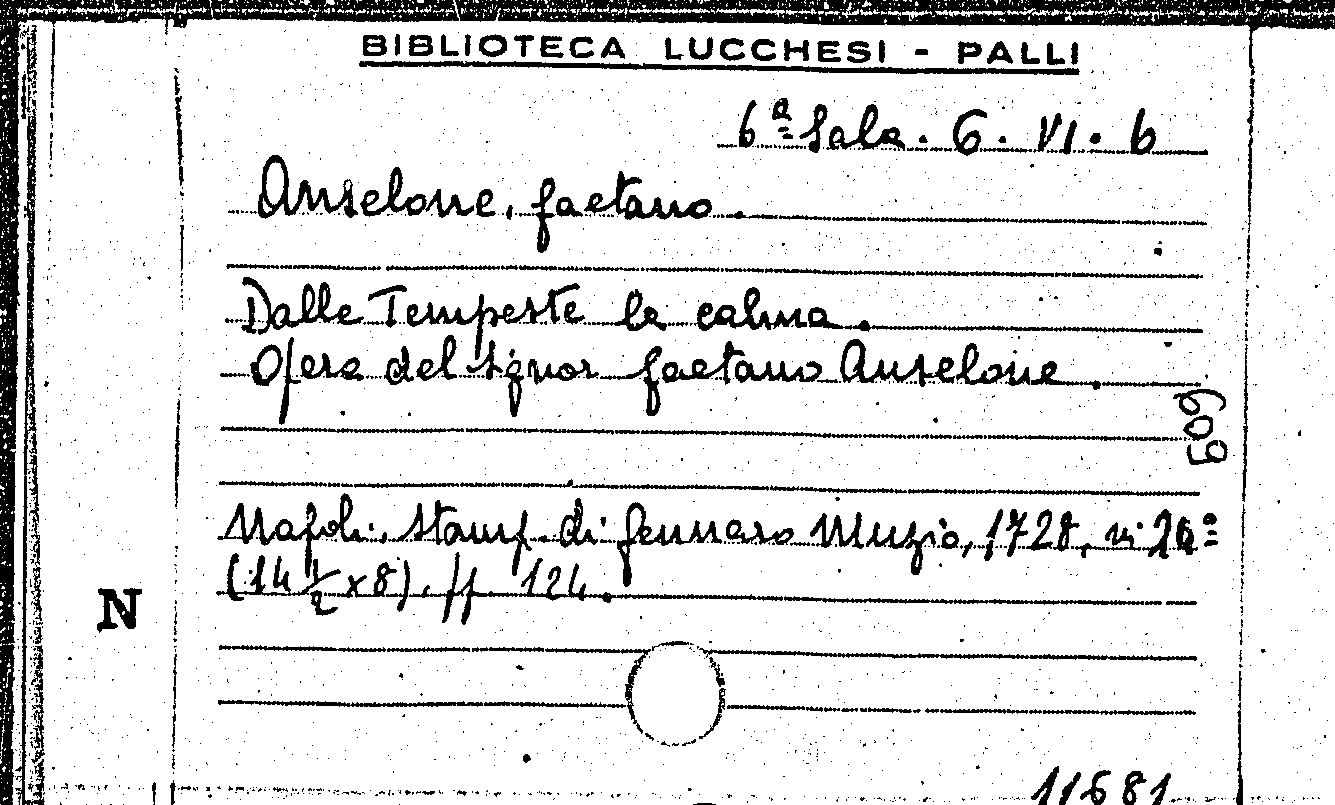 BIBLIOTECA LUCCHESI - PALLI
6ª Sala. 6. VI. 6
Anselone, Gaetano.
Dalle Tempeste la calma.
Opera del Signor Gaetano Anselone.
609
Napoli. Stamp. di Gennaro Muzio, 1728, in
(14 1/2 x 8). pp. 124.
N
11681